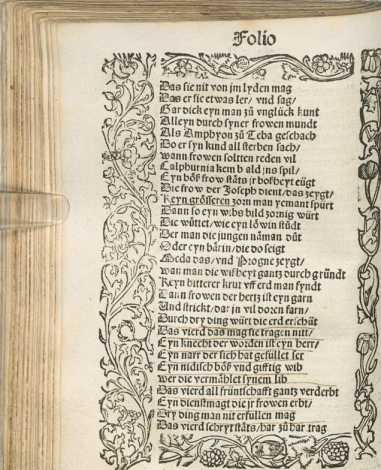 Folio
Das sie nit von jm lyden mag
Das er sie etwas ler/ vnd sag/
Gar dick eyn man zů vnglück kunt
Alleyn durch syner frowen mundt
Als Amphyon zů Teba geschach
Do er syn kind all sterben sach/
wann frowen soltten reden vil
Calphurnia kem bald jns spil/
Eyn böß frow stäts jr boßheyt eügt
Die frow der Joseph dient/das zeygt/
Keyn größeren zorn man yemant spürt
Dann so eyn wibs bild zornig würt
Die wüttet/wie eyn löwin stüdt
Der man die jungen näman düt
Oder eyn bärin/die do seigt
Meda das/vnd Progne zeygt/
wan man die wißheyt gantz durch gründt
Keyn bitterer krut vff erd man fyndt
Dann frowen der hertz ist eyn garn
Vnd strickt/dar jn vil doren farn/
Durch dry ding würt die erd erschüt
Das vierd das mag sie tragen nitt/
Eyn knecht der worden ist eyn herr/
Eyn narr der sich hat gefüllet ser
Eyn nidisch böß vnd gifftig wib
wer die vermählet synem lib
Das vierd all früntschafft gantz verderbt
Eyn dienstmagt die jr frowen erbt/
Dry ding man nit erfüllen mag
Das vierd schryt stäts/har zů har trag